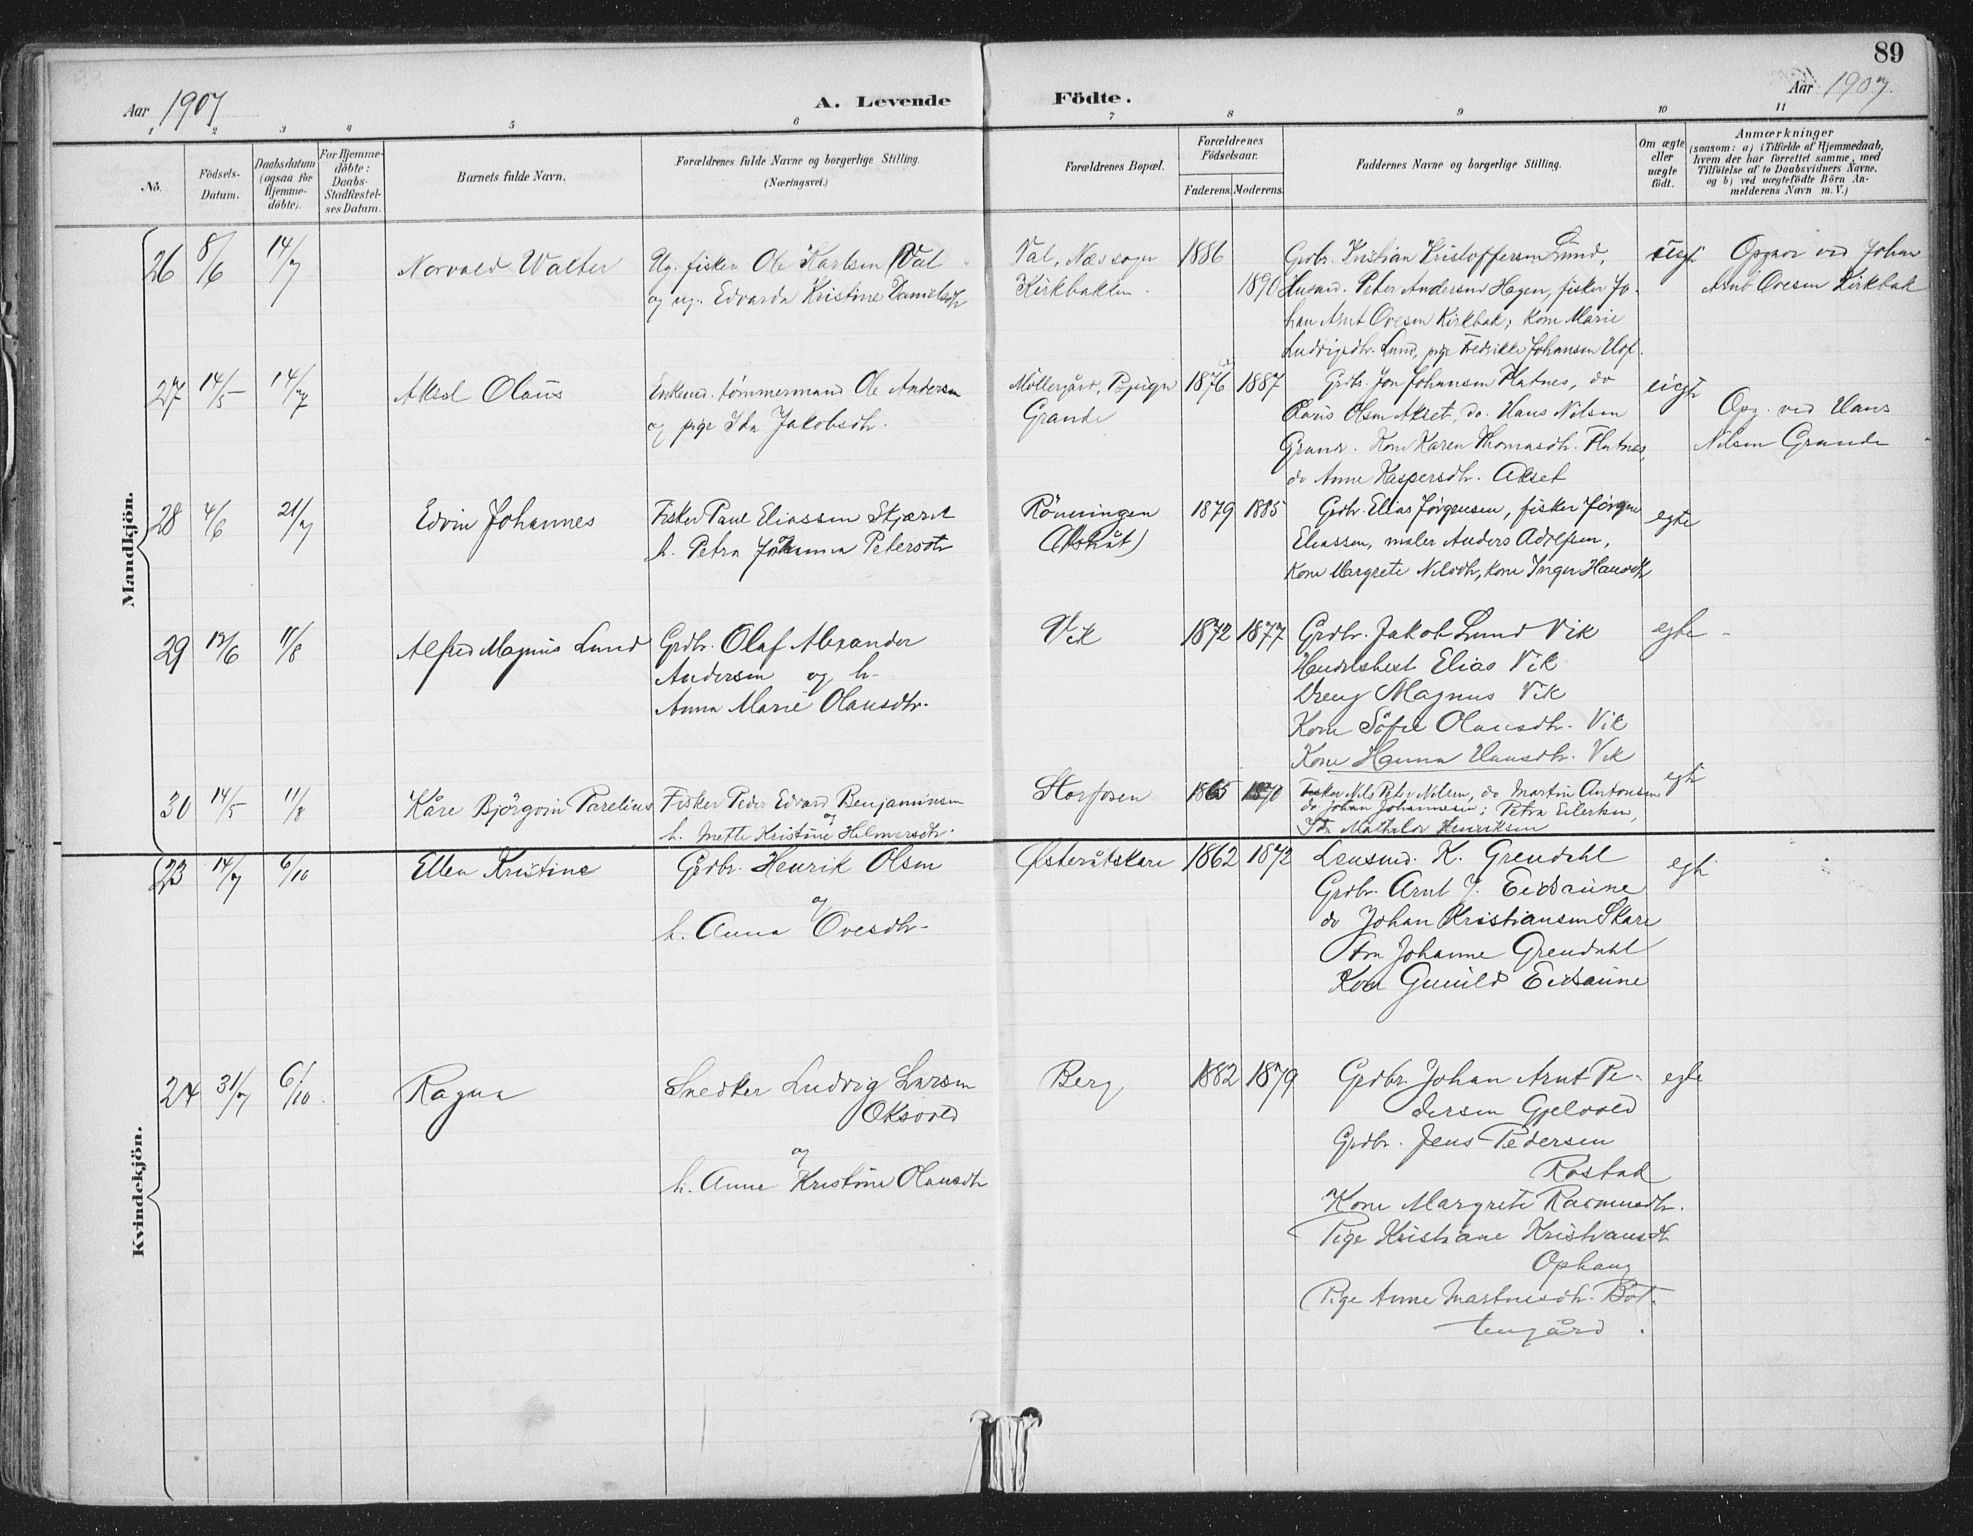 89
Aar 1907
A. Levende Födte.
Aar 1907.
1 2 3 4 5 6 7 8 9 10 11
No.
Födsels-Datum.
Daabsdatum (ogsaa for Hjemme-döbte).
For Hjemme-döbte: Daabs-Stadfæstel-ses Datum.
Barnets fulde Navn.
Forældrenes fulde Navne og borgerlige Stilling.
(Næringsvei.)
Forældrenes Bopæl.
Forældrenes Födselsaar.
Faderens. Moderens.
Faddernes Navne og borgerlige Stilling.
Om ægte eller uægte födt.
Anmærkninger
(saasom: a) i Tilfælde af Hjemmedaab,
hvem der har forrettet samme, med
Tilföielse af to Daabsvidners Navne,
og b) ved uægtefödte Börn An-
melderens Navn m. V.)
Mandkjön.
26 8/6 14/7 Norvald Walter
Ug. fisker Ole Karlsen Val
og ug. Edvarda Kristine Danielsdtr
Val, Næs sogn
Kirkbakken.
1886
1890
Grdbr. Kristian Kristoffersen Lund,
Husmd. Peter Andersen Hagen, fisker Jo-
han Arnt Ovesen Kirkbak; Kone Marie
Ludvigsdtr. Lund, pige Fredrikke Johansen
Opgav ved Johan
Arnt Ovesen Kirkbak
27 14/5 14/7 Aksel Olaus
Enkemd. tømmermand Ole Andersen
og pige Ida Jakobsdtr.
Møllergård, Bjugn
Grande
1876 1887
Grdbr. Jon Johansen Flatnes, do
Olsen Akset, do. Hans Nilsen
Grande. Kone Karen Thomasdtr. Flatnes,
do Anne Kaspersdtr. Akset
Opg. ved Hans
Nilsen Grande
28 4/6 21/7 Edvin Johannes
Fisker Paul Eliassen
h. Petra Johanna Petersdtr
Rönningen
1879 1885
Grdbr. Elias Jørgensen, fisker Jørgen
Eliassen, maler Anders Adolfsen,
Kone Margrete Nilsdtr, kone Inger Hansdtr
egte
29 12/6 11/8 Alfred Magnus Lund
Grdbr. Olaf Alexander
Andersen og h.
Anna Marie Olausdtr.
Vik
1872 1877
Grdbr. Jakob Lund Vik
Handelsbest Elias Vik
Dreng Magnus Vik
Kone Sofie Olausdtr. Vik
Kone Hanna Hansdtr. Vik
egte
30 14/5 11/8 Kåre Björgvin Parelius
Fisker Peder Edvard Benjaminsen
og
h. Mette Kristine Helmersdtr.
Storfosen
1865 1870
Fisker Nils Peter Nilsen, do Martin Antonsen
do Johan Johannesen; Petra Eilertsen,
Ida Mathilde Henriksen
egte
Kvindekjön.
23 14/7 6/10 Ellen Kristine
Grdbr. Henrik Olsen
og
h. Anna Ovesdtr.
Østeråtskare
1862 1872
Lensmd. K. Grendahl
Grdbr. Arnt J. Eidsaune
do Johan Kristiansen Skare
Fru Johanne Grendahl
Kone Gunild Eidsaune
egte
24 31/7 6/10 Ragna
Snedker Ludvig Larsen
Oksvold
og
h. Anne Kristine Olausdtr
Berg
1882 1879
Grdbr. Johan Arnt Pe-
dersen Gjelvold
Grdbr. Jens Pedersen
Rostad
Kone Margrete Rasmusdtr.
Pige Kristiane Kristiansdtr
Ophaug
Pige Anne Martinesdtr. Bot-
tengård.
egte